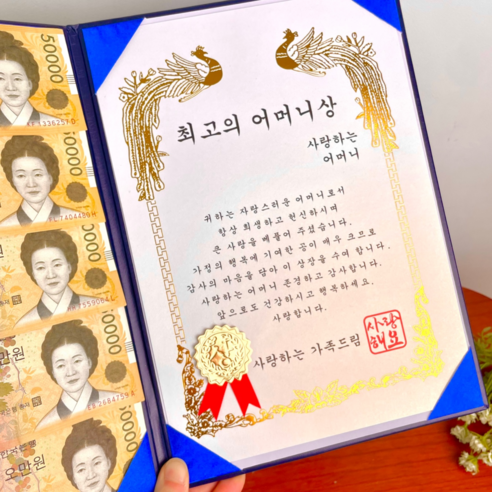 50000
최고의 어머니상
사랑하는
어머니
귀하는 자랑스러운 어머니로서
항상 희생하고 헌신하시며
큰 사랑을 베풀어 주셨습니다.
가정의 행복에 기여한 공이 매우 크므로
감사의 마음을 담아 이 상장을 수여 합니다.
사랑하는 어머니 존경하고 감사합니다.
앞으로도 건강하시고 행복하세요.
사랑합니다.
사랑하는 가족드림
사랑
해요
만원
오만원